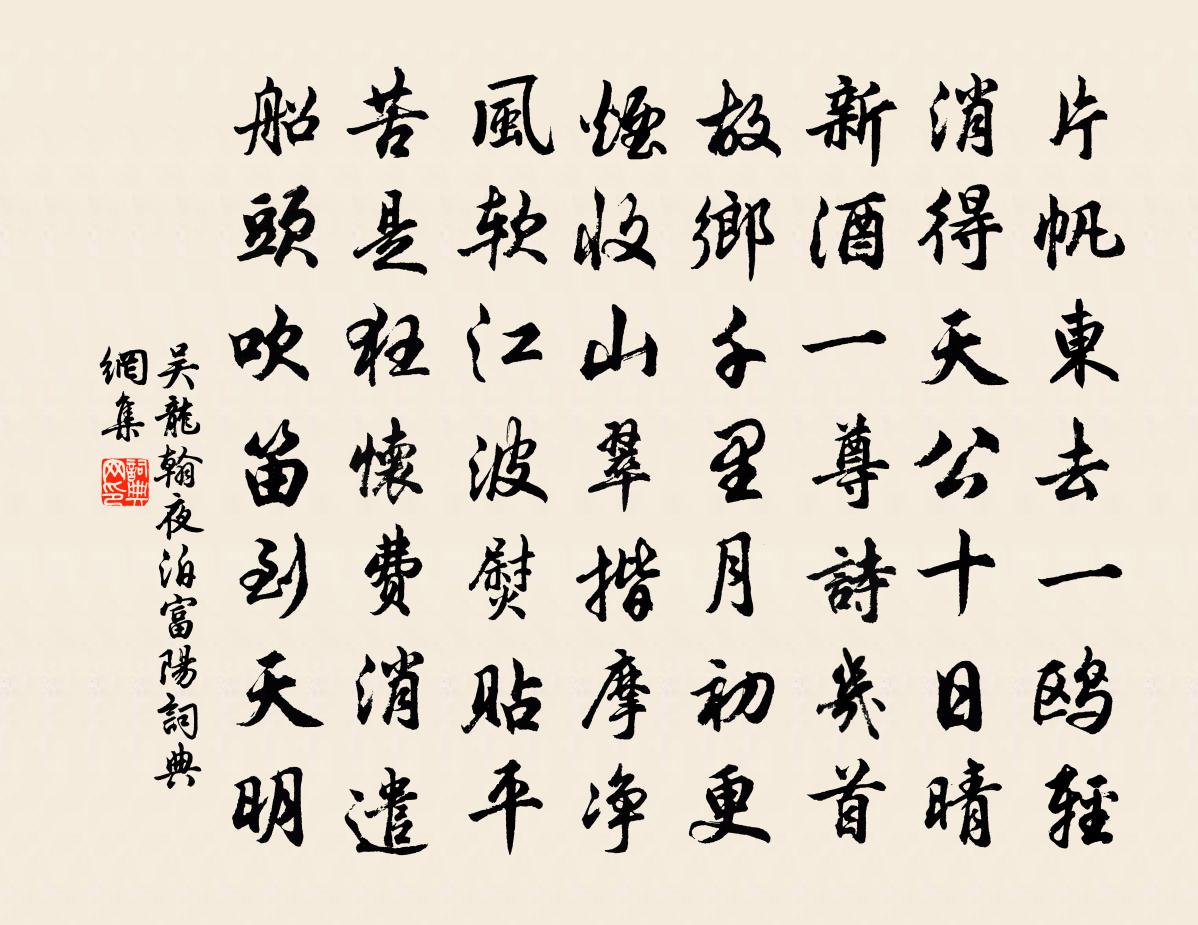 片帆東去一鸥輕
消得天公十日晴
新酒一尊詩幾首
故鄉千里月初更
煙收山翠揩摩净
風软江波熨贴平
苦是狂懷費消遣
船頭吹笛到天明
吴龍翰夜泊富陽詞典
網集
詞典
网印